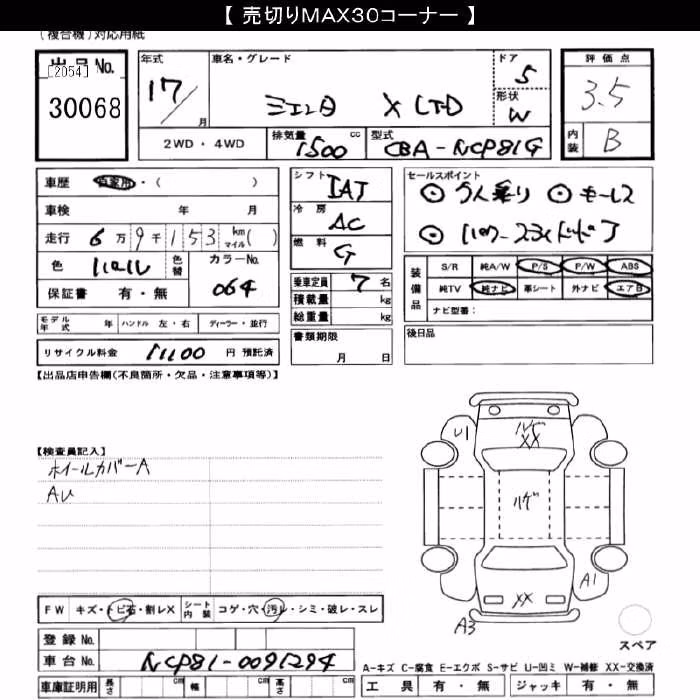 【 売切りMAX30コーナー 】
(複合機)対応用紙
出品No.
[2054]
30068
年式
17/
月
車名・グレード
X LTD
ドア
5
形状
W
2WD ・ 4WD
排気量
1500
cc
型式
CBA-NCP81G
評価点
3.5
内装
B
車歴
自家用・(
)
車検
年
月
走行
6万9千153
km
マイル
(
)
色
パール
色替
カラーNo.
064
保証書
有・無
シフト
IAT
冷房
AC
燃料
G
乗車定員
7
名
積載量
kg
総重量
kg
セールスポイント
◎ 7人乗り ◎ キーレス
◎ パワースライドドア
装備品
S/R
純A/W
P/S
P/W
ABS
純TV
純ナビ
革シート
外ナビ
エアB
ナビ型番:
モデル年式
年
ハンドル
左・右
ディーラー・並行
リサイクル料金
11100
円 預託済
書類期限
月
日
後日品
【出品店申告欄(不良箇所・欠品・注意事項等)】
【検査員記入】
ホイールカバーA
AU
U1
ハゲ
XX
ハゲ
A1
XX
A3
スペア
FW
キズ・トビ石・割レX
シート内装
コゲ・穴・汚レ・シミ・破レ・スレ
登録 No.
車台 No.
NCP81-0091294
車庫証明用
長さ
cm
幅
cm
高さ
cm
A-キズ C-腐食 E-エクボ S-サビ U-凹ミ W-補修 XX-交換済
工 具
有・無
ジャッキ
有・無